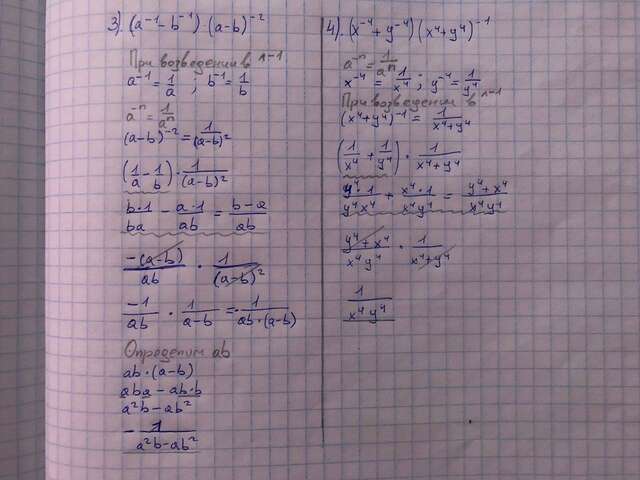 3). (a⁻¹-b⁻¹)·(a-b)⁻²
При возведении в n-1
a⁻¹=1/a ; b⁻¹=1/b
a⁻ⁿ=1/aⁿ
(a-b)⁻²=1/(a-b)²
(1/a-1/b)·1/(a-b)²
b·1/ba - a·1/ab = b-a/ab
-(a-b)/ab · 1/(a-b)²
-1/ab · 1/a-b =-1/ab·(a-b)
Определим ab
ab·(a-b)
aba-ab·b
a²b-ab²
-1/a²b-ab²
4). (x⁻⁴+y⁻⁴)(x⁴+y⁴)⁻¹
a⁻ⁿ=1/aⁿ
x⁻⁴=1/x⁴ ; y⁻⁴=1/y⁴
При возведении в n-1
(x⁴+y⁴)⁻¹=1/x⁴+y⁴
(1/x⁴+1/y⁴)·1/x⁴+y⁴
y⁴·1/y⁴x⁴ + x⁴·1/x⁴y⁴ = y⁴+x⁴/x⁴y⁴
y⁴+x⁴/x⁴y⁴ · 1/x⁴+y⁴
1/x⁴y⁴